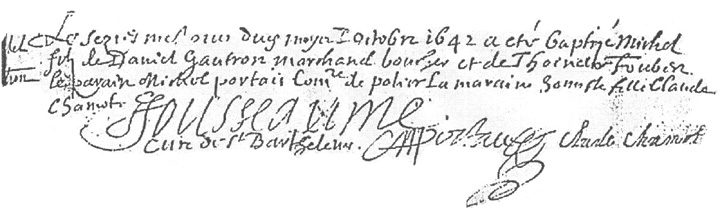 Le sezies mesme jour du moys d'Octobre 1642 a eté baptizé Michel
filz de Daniel Gautron marchand boucher et de Thoinette Foubert
le parain Michel portais Com.re de police La maraine honneste fille Claude
Chamot
Jousseaume
Curé de St Barthelemy. MPortais Claude Chamot